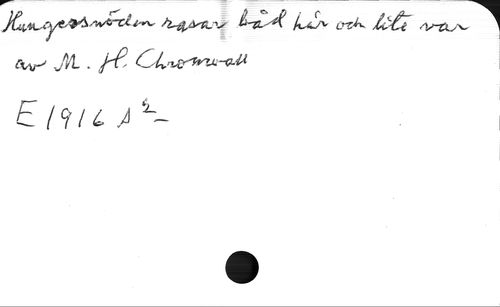 Hungersnöden rasar båd här och lite var
av M. H. Chronwall
E 1916 s 2-